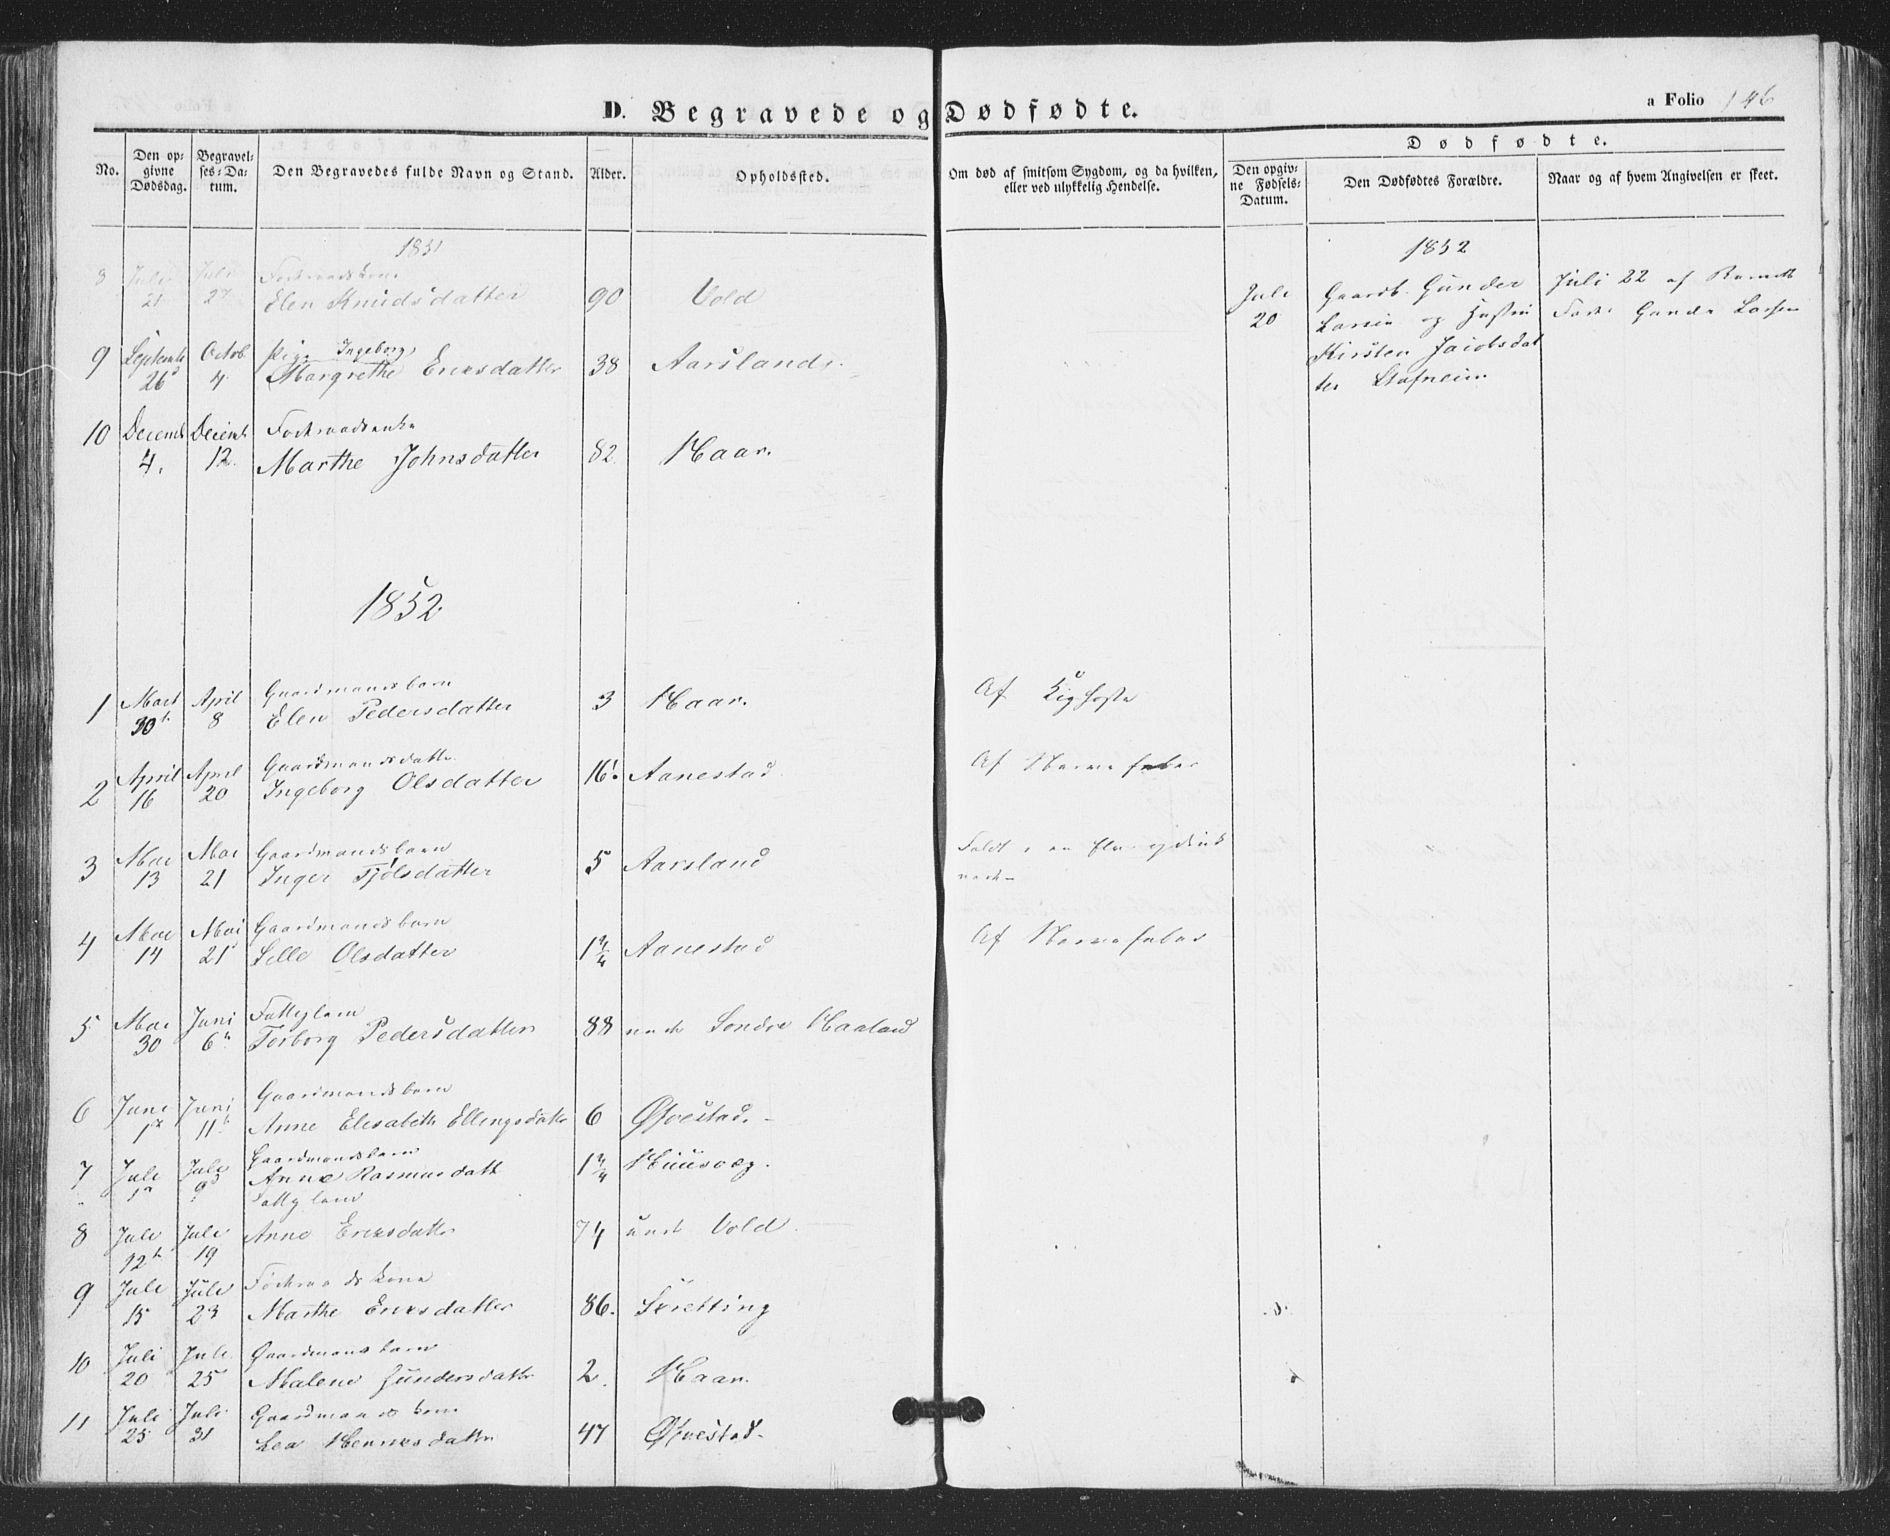 D. Begravede og Dødfødte.
a Folio 146
No.
Den opgivne Dødsdag.
Begravelses-Datum.
Den Begravedes fulde Navn og Stand.
Alder.
Opholdssted.
Om død af smitsom Sygdom, og da hvilken, eller ved ulykkelig Hendelse.
Dødfødte.
Den opgivne Fødsels-Datum.
Den Dødfødtes Forældre.
Naar og af hvem Angivelsen er skeet.
1851
8 Juli 21 Juli 27 Foderaadskone
Elen Knudsdatter 90 Vold
9 Septemb 26 Octob 4. Pige Ingeborg
Margrethe Ericsdatter 38 Aarsland
10 Decemb 4. Decemb 12. Foderaadsenke
Marthe Johnsdatter 82. Haar.
1852
Juli 20 Gaardb. Gunder
Larsen og Hustru
Kirsten Jacobsdat
ter Stafneim
Juli 22 af Barnets
Fader Gunder Larsen
1852
1 Mart 30 April 8 Gaardmandsbarn
Elen Pedersdatter 3 Haar. Af Kighoste
2 April 16 April 20 Gaardmandsdatter
Ingeborg Olsdatter 16. Aanestad Af Nervefeber
3 Mai 13 Mai 21 Gaardmandsbarn
Inger Tjølsdatter 5 Aarsland Faldt i en
4 Mai 14 Mai 21 Gaardmandsbarn
Selle Olsdatter 1 3/4 Aanestad Af Nervefeber
5 Mai 30 Juni 6 Fattiglem
Torborg Pedersdatter 88 under Søndre Haaland
6 Juni 1 Juni 11 Gaardmandsbarn
Anne Elisabeth Ellingsdatter 6 Øfrestad.
7 Juli 1 Juli 9 Gaardmandsbarn
Anne Rasmusdatt 1 3/4 Huusvæg.
8 Juli 12 Juli 19 Fattiglem
Anne Ericsdatter 74 under Vold
9 Juli 15 Juli 23 Foderaadskone
Marthe Ericsdatter 86. Skretting
10 Juli 20 Juli 25 Gaardmansbarn
Malene Gundersdatter 2. Haar.
11 Juli 25 Juli 31 Gaardmandskone
Lea Henricsdatter 47 Øfrestad.